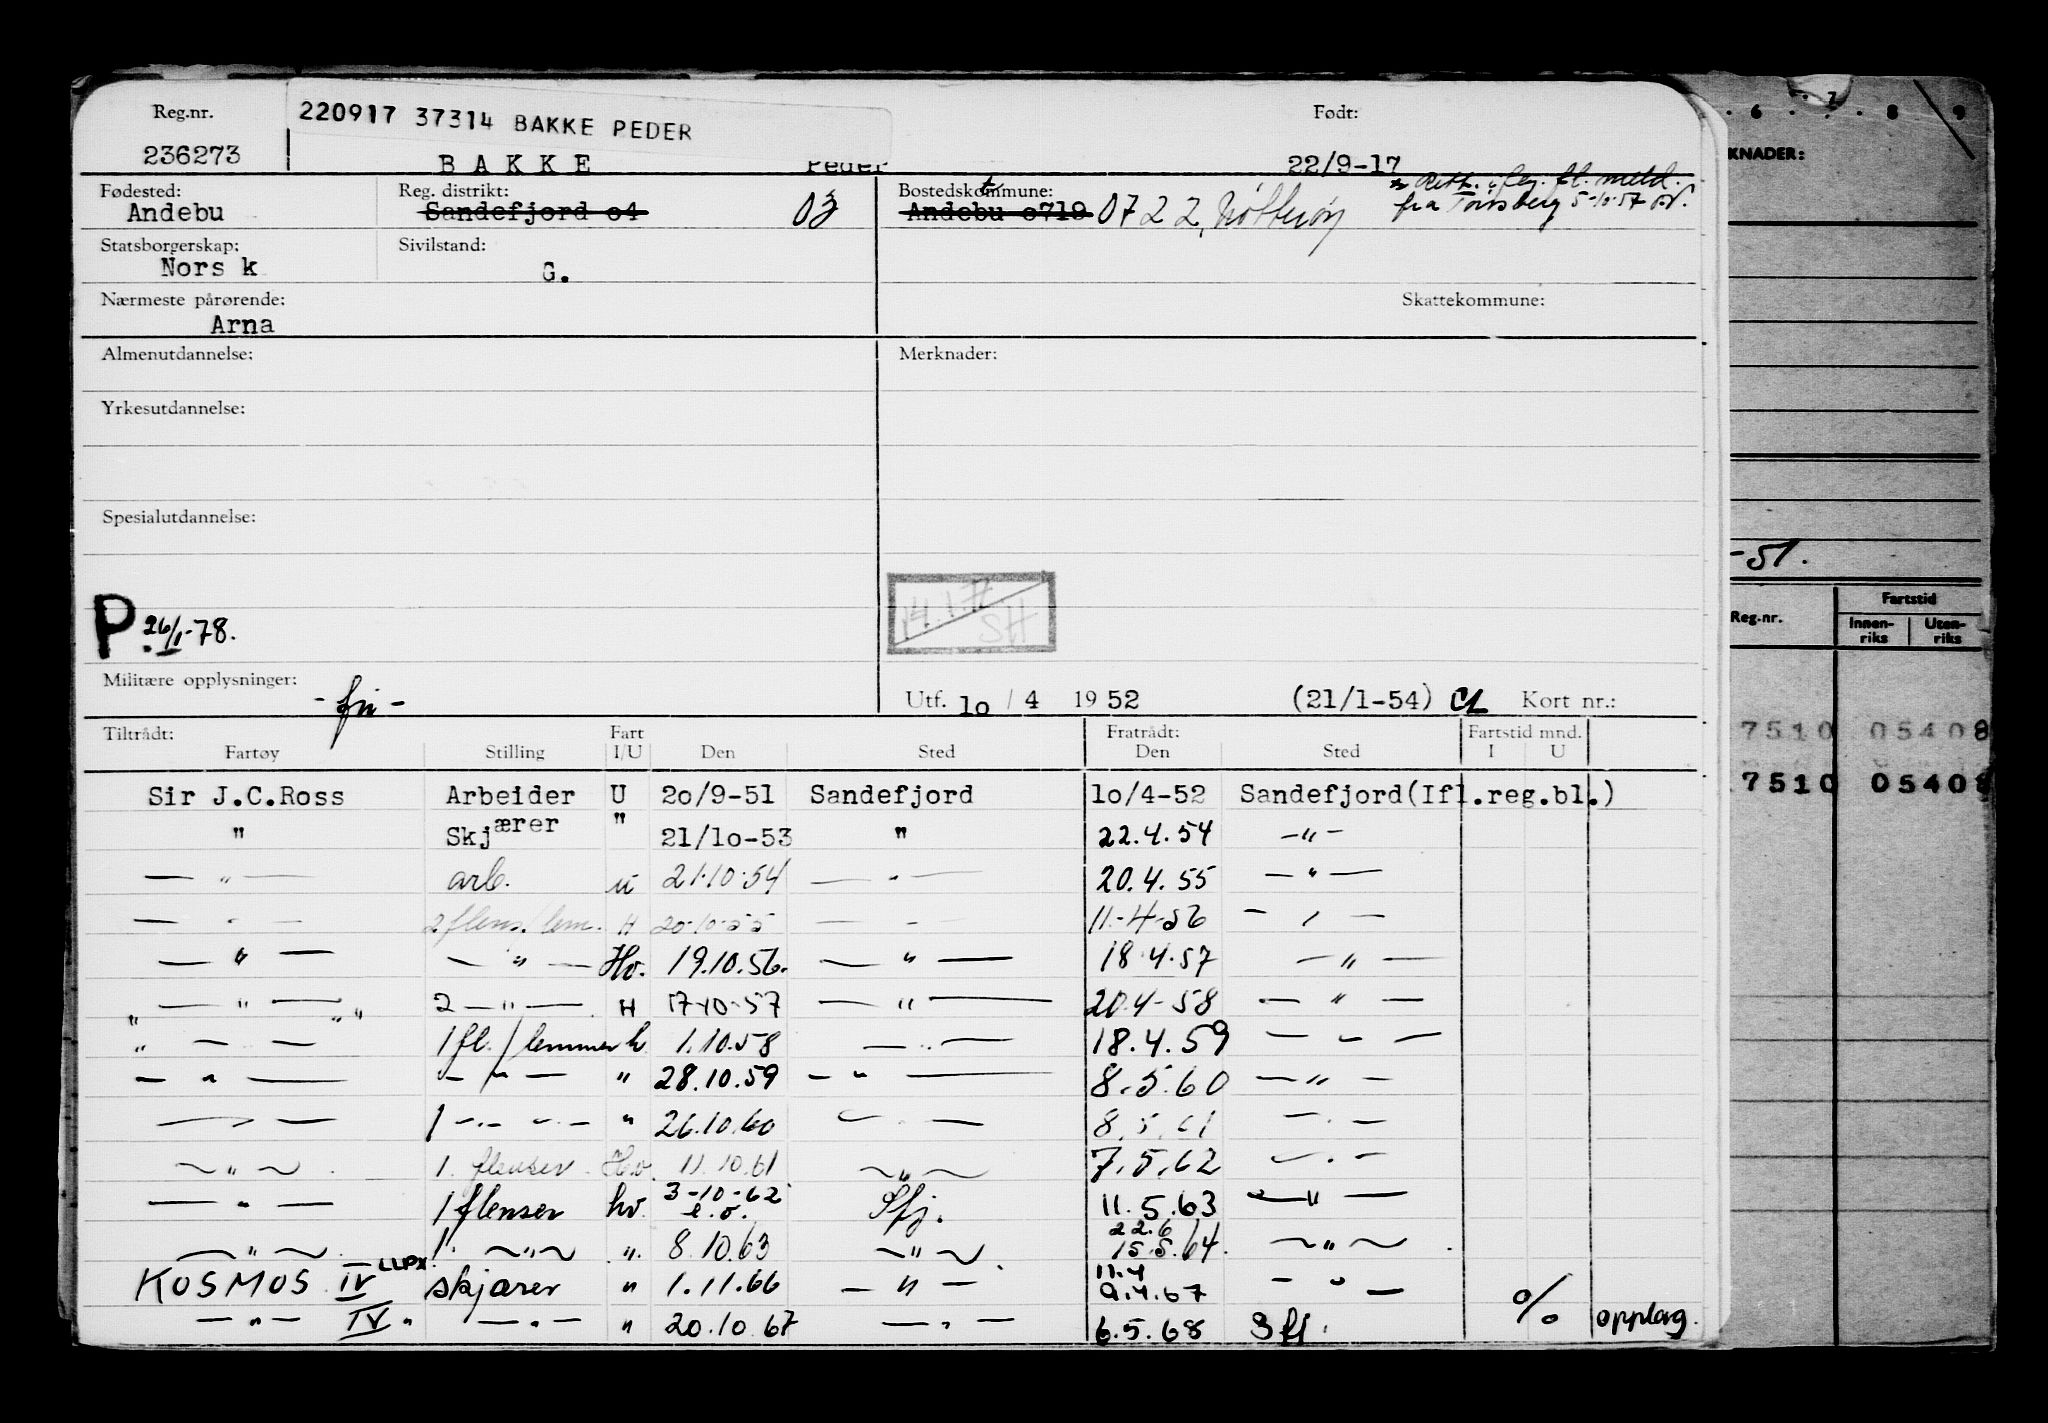 Reg.nr. 220917 37314 BAKKE PEDER Født:
236273 B A K K E Peder 22/9-17
Fødested: Reg. distrikt: Bostedskommune:
Andebu Sandefjord o4 03 Andebu o719 0722, Nøtterøy
fra Tønsberg 5-10-57
Statsborgerskap: Sivilstand:
Norsk G.
Nærmeste pårørende: Skattekommune:
Arna
Almenutdannelse: Merknader:
Yrkesutdannelse:
Spesialutdannelse:
P 26/1-78.
SH
Militære opplysninger: - fri - Utf. 1o / 4 19 52 (21/1-54) Kort nr.:
Tiltrådt: Fart Fratrådt: Fartstid mnd.
Fartøy Stilling I/U Den Sted Den Sted I U
Sir J.C.Ross Arbeider U 2o/9-51 Sandefjord 1o/4-52 Sandefjord(Ifl.reg.bl.)
" Skjærer " 21/1o-53 " 22.4.54 -"-
— " — arb. u 21.10.54 — " — 20.4.55 — " —
— " — 2 flens./lem. H 20-10-55 — " — 11-4-56 — " —
— " — — " — Hv. 19.10.56. — " — 18.4.57 — " —
— " — 2 — " — H 17-10-57 — " — 20.4-58 — " —
" — " — 1 fl./lemmer h 1.10.58 — " — 18.4.59 — " —
— " — — " — " 28.10.59 — " — 8.5.60 — " —
— " — 1 — " — " 26.10.60 — " — 8.5.61 — " —
— " — 1. flenser Hv. 11.10.61 — " — 7.5.62 — " —
— " — 1 flenser hv. 3-10-62 Sfj. 11.5.63 — " —
e.o.
22.6
— " — 1. — " — ". 8.10.63 — " — 15.5.64. — " —
11.4
KOSMOS IV LLPX skjærer " 1.11.66 — " — 9.4.67 — " —
— " — IV " — " — " 20.10.67 — " — 6.5.68 Sfj. % opplag.
6 . 7 . 8 . 9
KNADER:
-51.
Reg.nr. Fartstid
Innen-riks Uten-riks
7510 05408
7510 05408